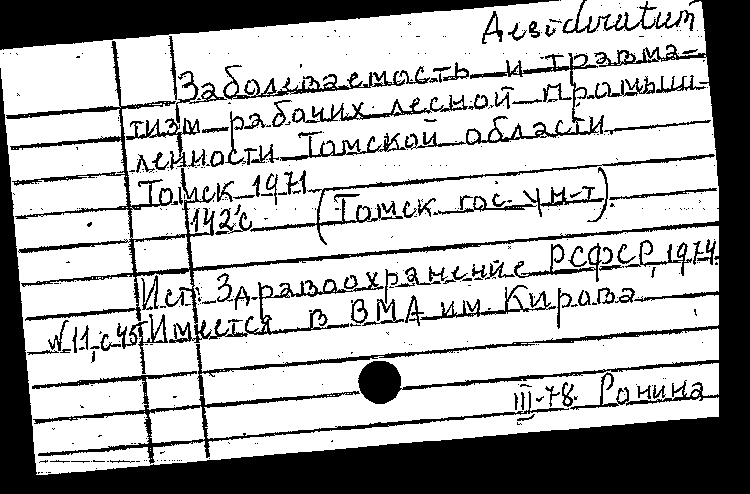 Desideratum
Заболеваемость и травма-
тизм рабочих лесной промыш-
ленности Томской области.
Томск 1971
142 с (Томск. гос. ун-т).
Ист. Здравоохранение РСФСР, 1974.
N 11, с 45 Имеется в ВМА им. Кирова
III-78. Ронина